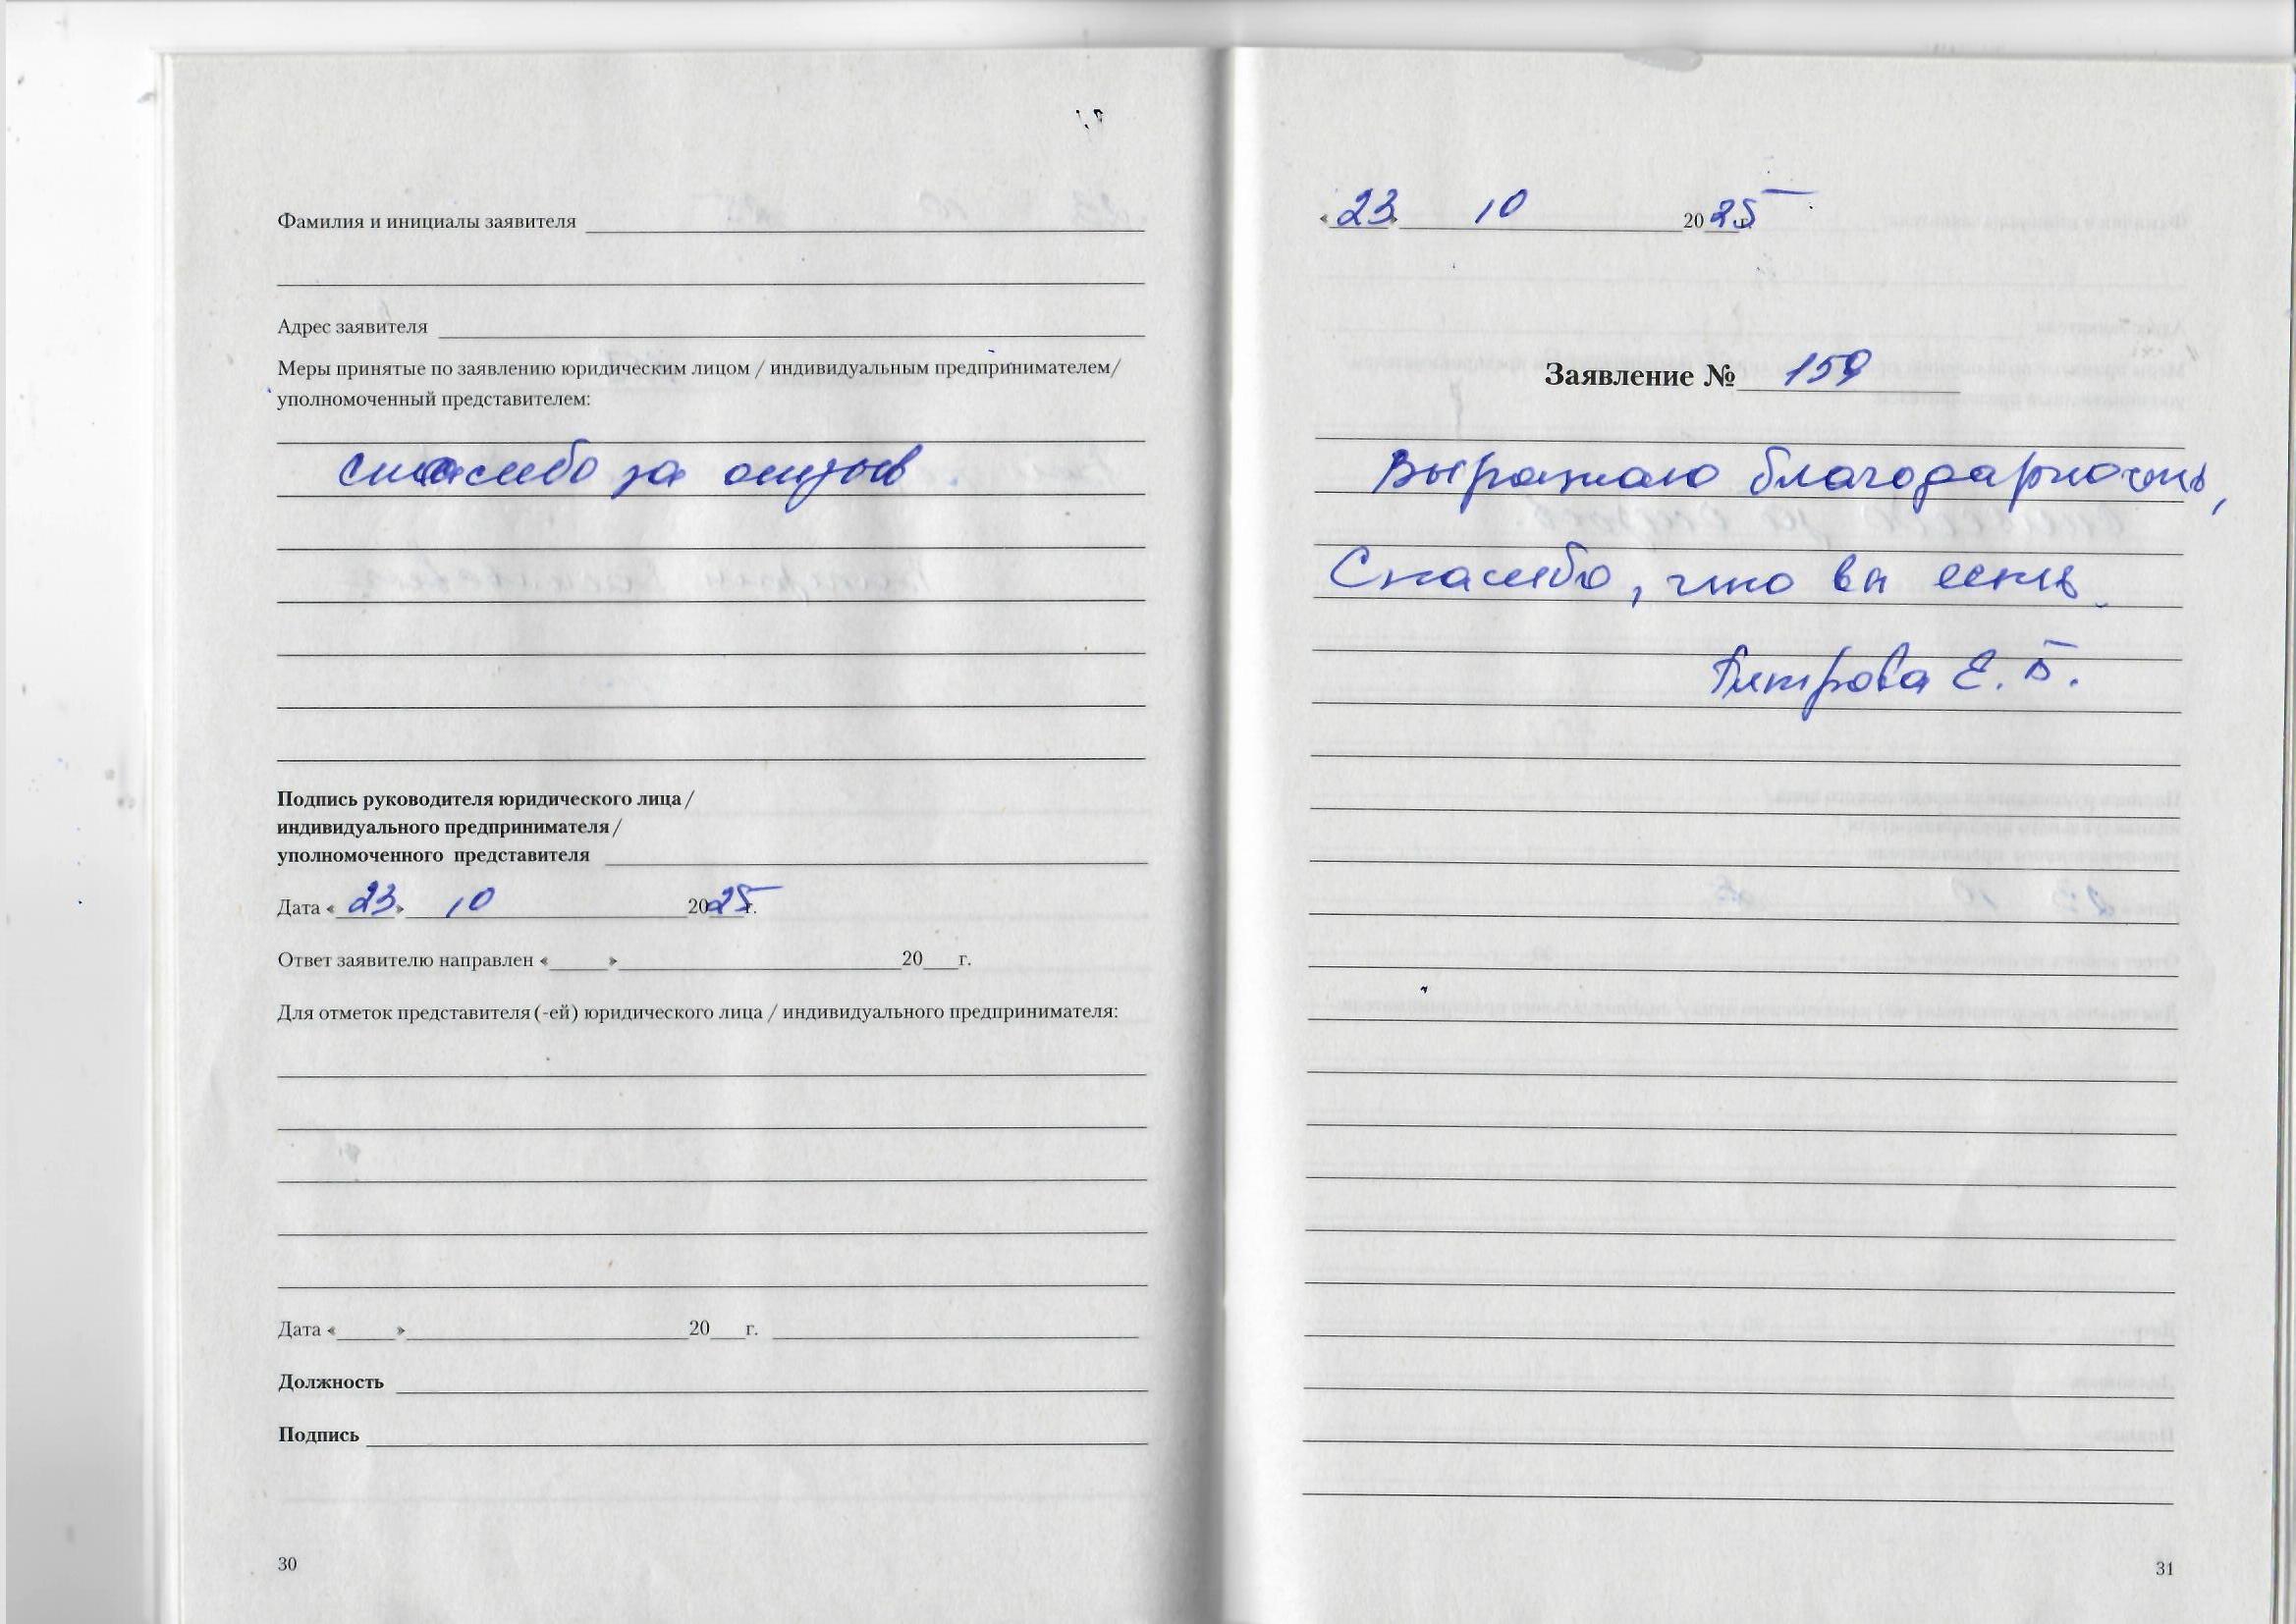 Фамилия и инициалы заявителя
Адрес заявителя
Меры принятые по заявлению юридическим лицом / индивидуальным предпринимателем/
уполномоченный представителем:
спасибо за отзыв.
Подпись руководителя юридического лица /
индивидуального предпринимателя /
уполномоченного представителя
Дата « 23 » 10 2025 г.
Ответ заявителю направлен «_____» 20___г.
Для отметок представителя (-ей) юридического лица / индивидуального предпринимателя:
Дата «_____» 20___г.
Должность
Подпись
30
« 23 » 10 2025 г.
Заявление № 159
Выражаю благодарность,
Спасибо, что вы есть.
Петрова Е. Б.
31